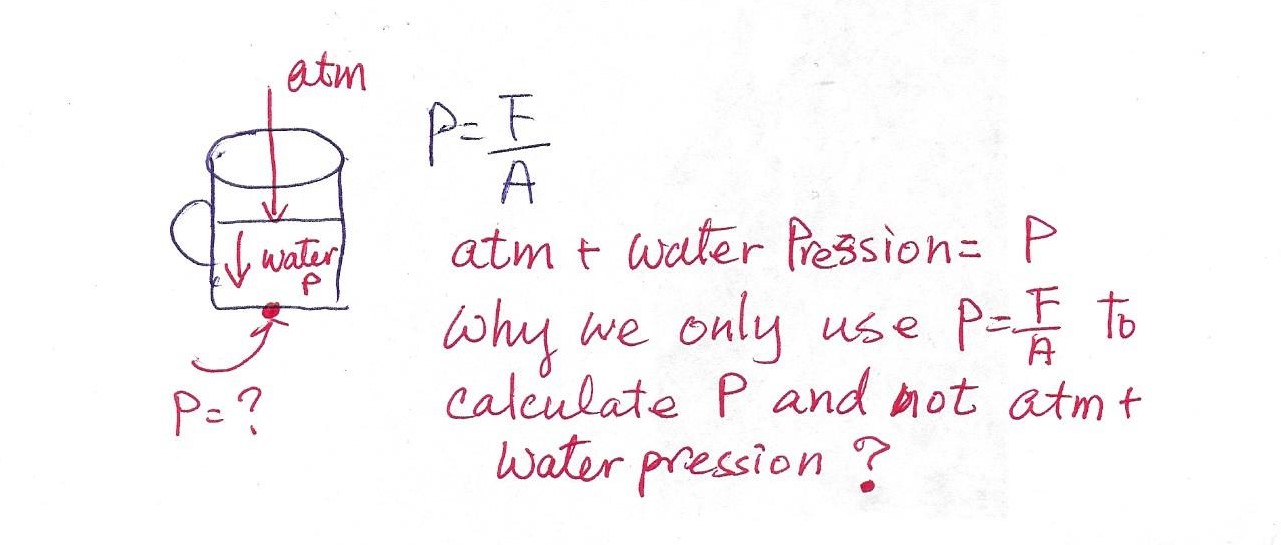 atm
P = F/A
water
P
P = ?
atm + water Pression = P
Why we only use P = F/A to
calculate P and not atm +
water pression ?